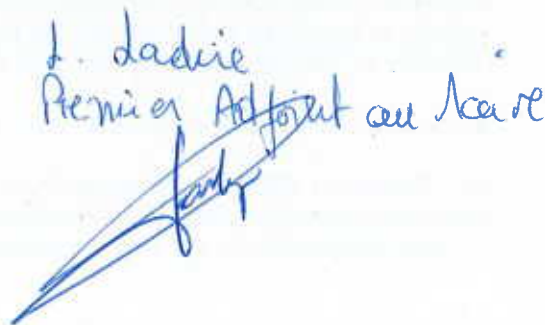 L. Ladire
Premier Adjoint au Maire